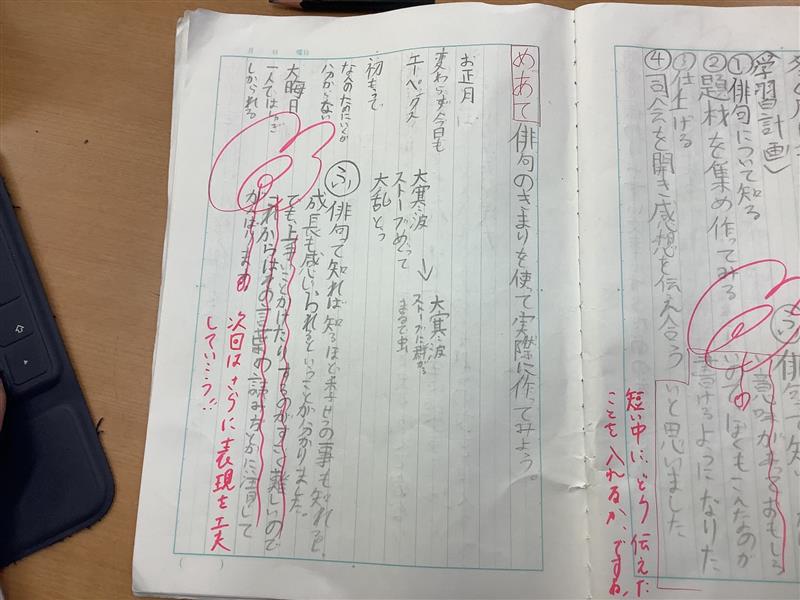 学習計画〉
①俳句について知る
②題材を集め作ってみる
③仕上げる
④司会を開き感想を伝え合う
ふ
俳句で知
意味があっておもしろ
いのでぼくもこんなのが
書けるようになりた
いと思いました
短い中に、どう伝えた
ことを入れるか、ですね。
めあて 俳句のきまりを使って実際に作ってみよう。
お正月に
変わらず今日も
エーペックス
初もうで
なんのためにいくか
分からない
大晦日
一人ではしゃぎ
しかられる
大寒波
ストーブめぐって
大乱とう
↓
大寒波
ストーブに群がる
まるで虫
ふ
俳句で知れば知るほど季せつの事も知れるし
成長も感じられるということが分かりました。
でも上手いことかけたりするのがすごく難しいので
これからはその言葉の読み方とかに注目して
がんばります
次回はさらに表現を工夫
していこう!!
月 日 曜日